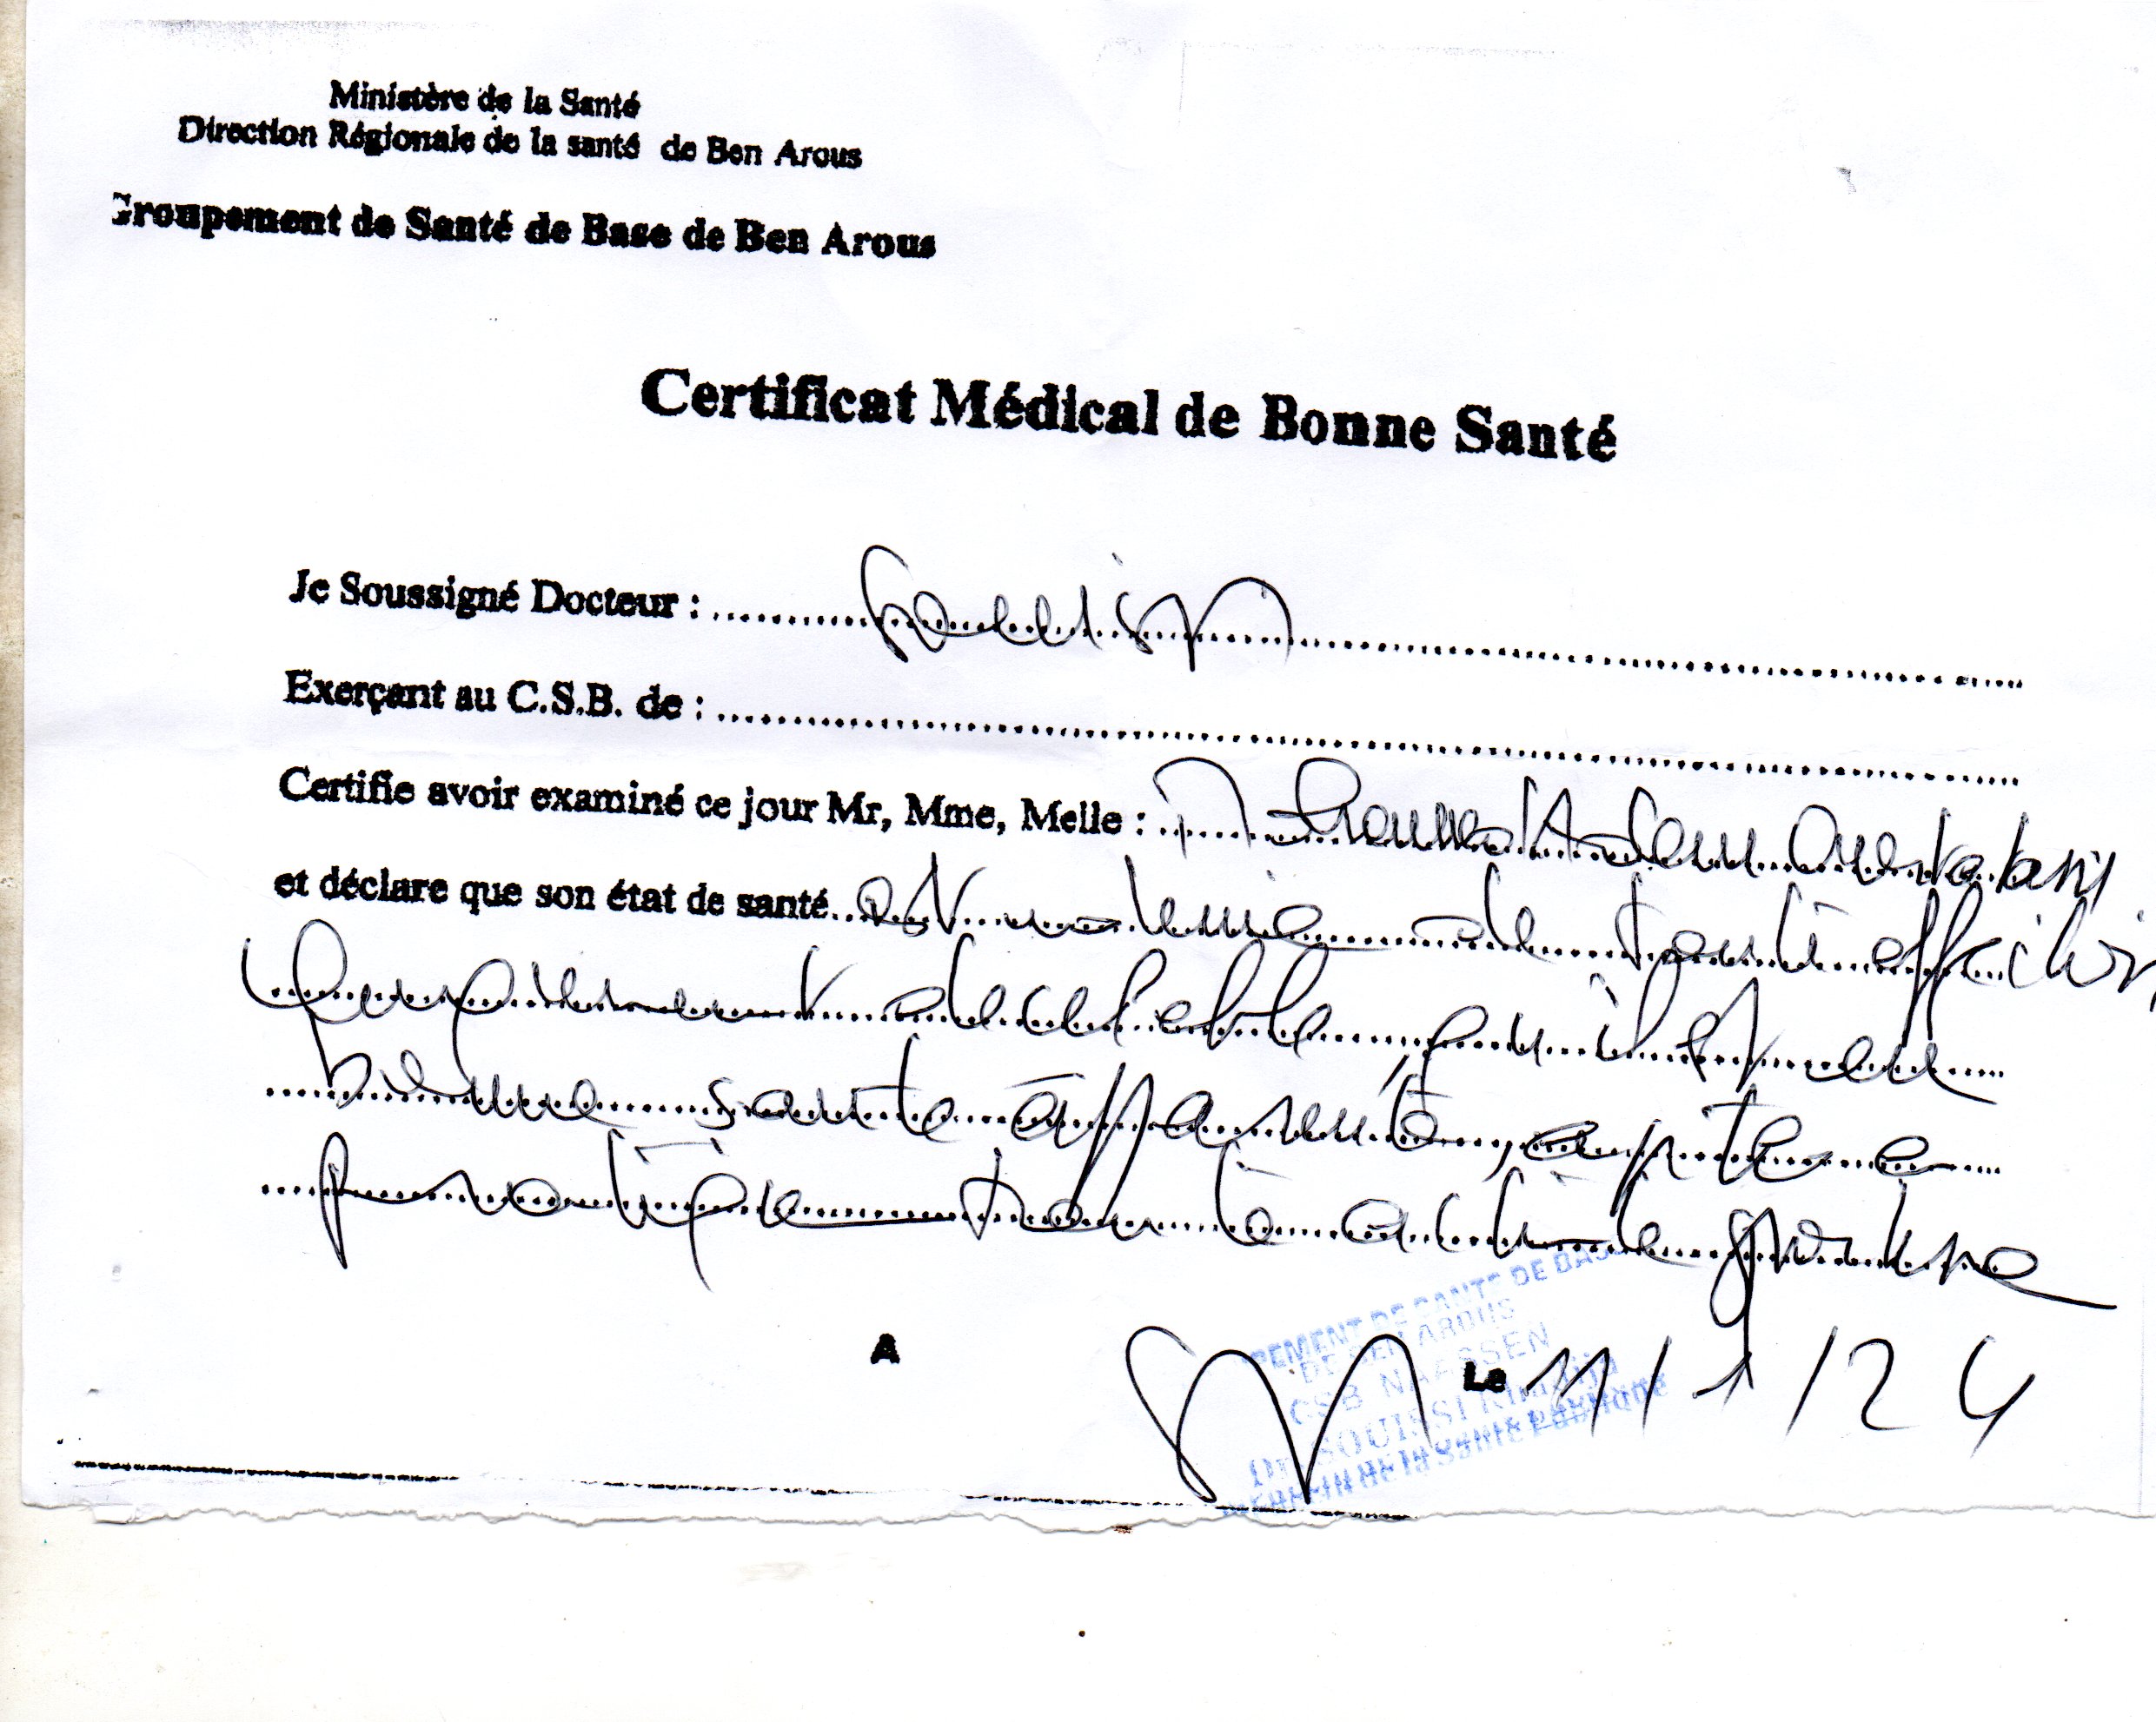 Ministère de la Santé
Direction Régionale de la santé de Ben Arous
Groupement de Santé de Base de Ben Arous
Certificat Médical de Bonne Santé
Je Soussigné Docteur :
Exerçant au C.S.B. de :
Certifie avoir examiné ce jour Mr, Mme, Melle :
et déclare que son état de santé est indemne de toute affection
cliniquement décelable, qu'il est en
bonne santé apparente, apte a
pratiquer toute activité sportive
PEMENT DE SANTE DE BASE
DE BEN AROUS
CSB NAASSEN
Dr SOUISSI
de la Santé Publique
A
Le 11/1/24